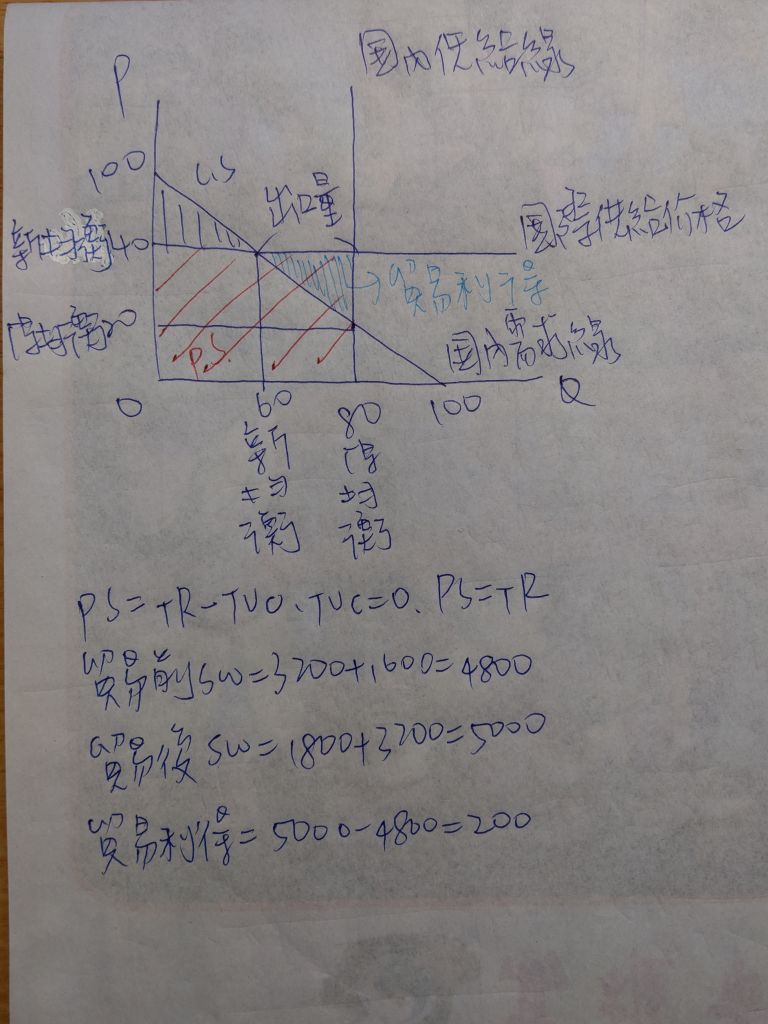 国內供給線
P
100
CS
出口量
新均衡40
国際供給价格
貿易利得
原均衡20
P.S.
国內需求線
0
60
80
100
Q
新均衡
原均衡
PS=TR-TVC、TVC=0、PS=TR
貿易前SW=3200+1600=4800
貿易後SW=1800+3200=5000
貿易利得=5000-4800=200